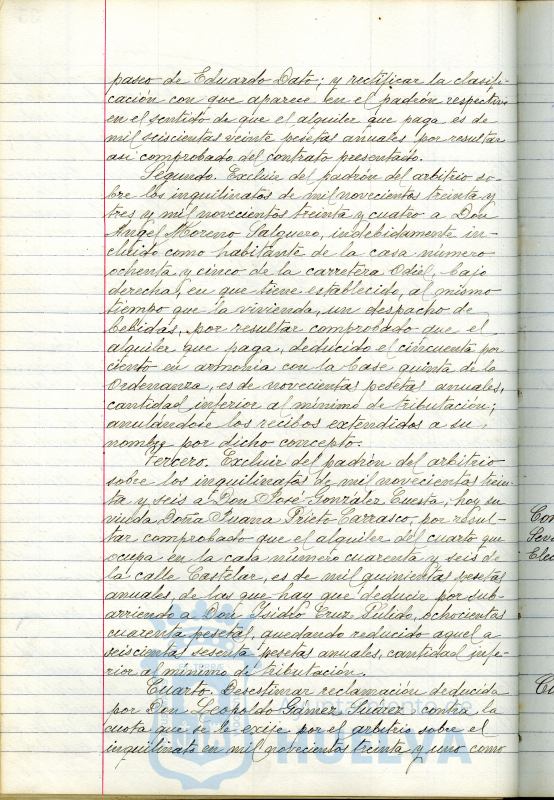 paseo de Eduardo Dato; y rectificar la clasifi-
cación con que aparece en el padrón respectivo
en el sentido de que el alquiler que paga es de
mil seiscientas veinte pesetas anuales por resultar
asi comprobado del contrato presentado.
Segundo. Excluir del padrón del arbitrio so-
bre los inquilinatos de mil novecientos treinta y
tres y mil novecientos treinta y cuatro a Don
Angel Moreno Salguero, indebidamente in-
cluido como habitante de la casa número
ochenta y cinco de la carretera Odiel, bajo
derecha, en que tiene establecido, al mismo
tiempo que la vivienda, un despacho de
bebidas, por resultar comprobado que el
alquiler que paga, deducido el cincuenta por
ciento en armonia con la base quinta de la
Ordenanza, es de novecientas pesetas anuales,
cantidad inferior al minimo de tributación;
anulándose los recibos extendidos a su
nombre por dicho concepto.
Tercero. Excluir del padrón del arbitrio
sobre los inquilinatos de mil novecientos trein-
ta y seis a Don José González Cuesta, hoy su
viuda Doña Juana Prieto Carrasco, por resul-
tar comprobado que el alquiler del cuarto que
ocupa en la casa número cuarenta y seis de
la calle Castelar, es de mil quinientas pesetas
anuales, de las que hay que deducir por sub-
arriendo a Don Isidro Cruz Pulido, ochocientas
cuarenta pesetas, quedando reducido aquel a
seiscientas sesenta pesetas anuales, cantidad infe-
rior al minimo de tributación.
Cuarto. Desestimar reclamación deducida
por Don Leopoldo Gámez Suarez contra la
cuota que se le exije por el arbitrio sobre el
inquilinato en mil novecientos treinta y uno como
Con
Elec
HUELVA